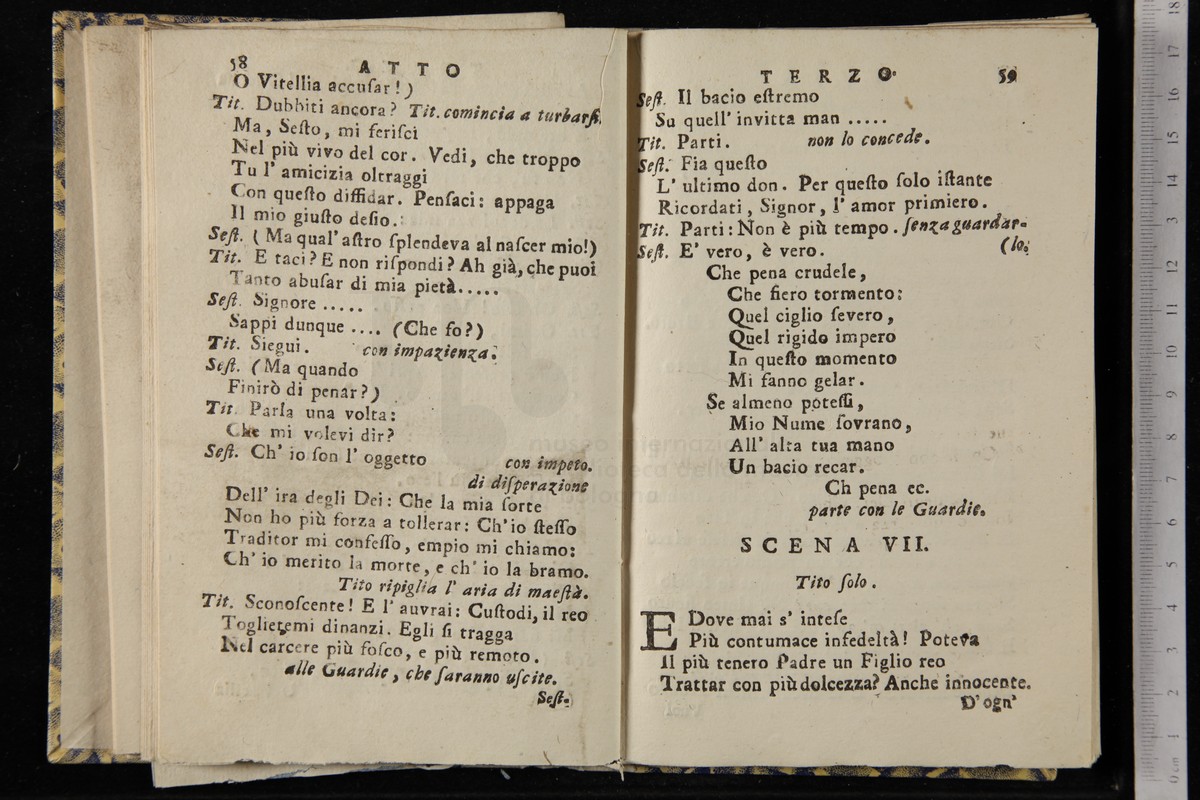 58 ATTO
O Vitellia accuſar!)
Tit. Dubbiti ancora? Tit. comincia a turbarſi.
Ma, Seſto, mi feriſci
Nel più vivo del cor. Vedi, che troppo
Tu l' amicizia oltraggi
Con queſto diffidar. Penſaci: appaga
Il mio giuſto deſio.
Seſt. (Ma qual' aſtro ſplendeva al naſcer mio!)
Tit. E taci? E non riſpondi? Ah già, che puoi
Tanto abuſar di mia pietà.....
Seſt. Signore .....
Sappi dunque .... (Che fo?)
Tit. Siegui. con impazienza.
Seſt. (Ma quando
Finirò di penar?)
Tit. Parla una volta:
Che mi volevi dir?
Seſt. Ch' io ſon l' oggetto con impeto.
di diſperazione
Dell' ira degli Dei: Che la mia ſorte
Non ho più forza a tollerar: Ch' io ſteſſo
Traditor mi confeſſo, empio mi chiamo:
Ch' io merito la morte, e ch' io la bramo.
Tito ripiglia l' aria di maeſtà.
Tit. Sconoſcente! E l' auvrai: Cuſtodi, il reo
Toglietemi dinanzi. Egli ſi tragga
Nel carcere più foſco, e più remoto.
alle Guardie, che ſaranno uſcite.
Seſt.
TERZO. 59
Seſt. Il bacio eſtremo
Su quell' invitta man .....
Tit. Parti. non lo concede.
Seſt. Fia queſto
L' ultimo don. Per queſto ſolo iſtante
Ricordati, Signor, l' amor primiero.
Tit. Parti: Non è più tempo. ſenza guardar-
Seſt. E' vero, è vero. (lo.
Che pena crudele,
Che fiero tormento:
Quel ciglio ſevero,
Quel rigido impero
In queſto momento
Mi fanno gelar.
Se almeno poteſſi,
Mio Nume ſovrano,
All' alta tua mano
Un bacio recar.
Ch pena ec.
parte con le Guardie.
SCENA VII.
Tito ſolo.
E Dove mai s' inteſe
Più contumace infedeltà! Poteva
Il più tenero Padre un Figlio reo
Trattar con più dolcezza? Anche innocente.
D' ogn'